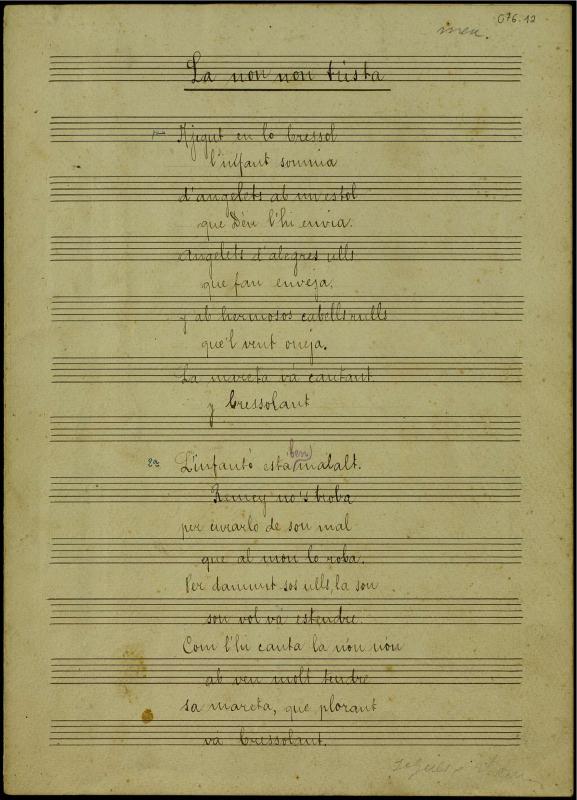 076.12
meu.
La non non trista
1ª Ajegut en lo bressol
l'infant somnia
d'angelets ab un estol
que Déu l'hi envia.
Angelets d'alegres ulls
que fan enveja,
y ab hermosos cabells rulls
que'l vent oneja.
La mareta vá cantant
y bressolant
2ª L'infantó esta ben malalt.
Remey no's troba
per curarlo de son mal
que al mon lo roba.
Per damunt sos ulls, la son
son vol vá estendre.
Com l'hi canta la nón nón
ab veu molt tendre
sa mareta, que plorant
vá bressolant.